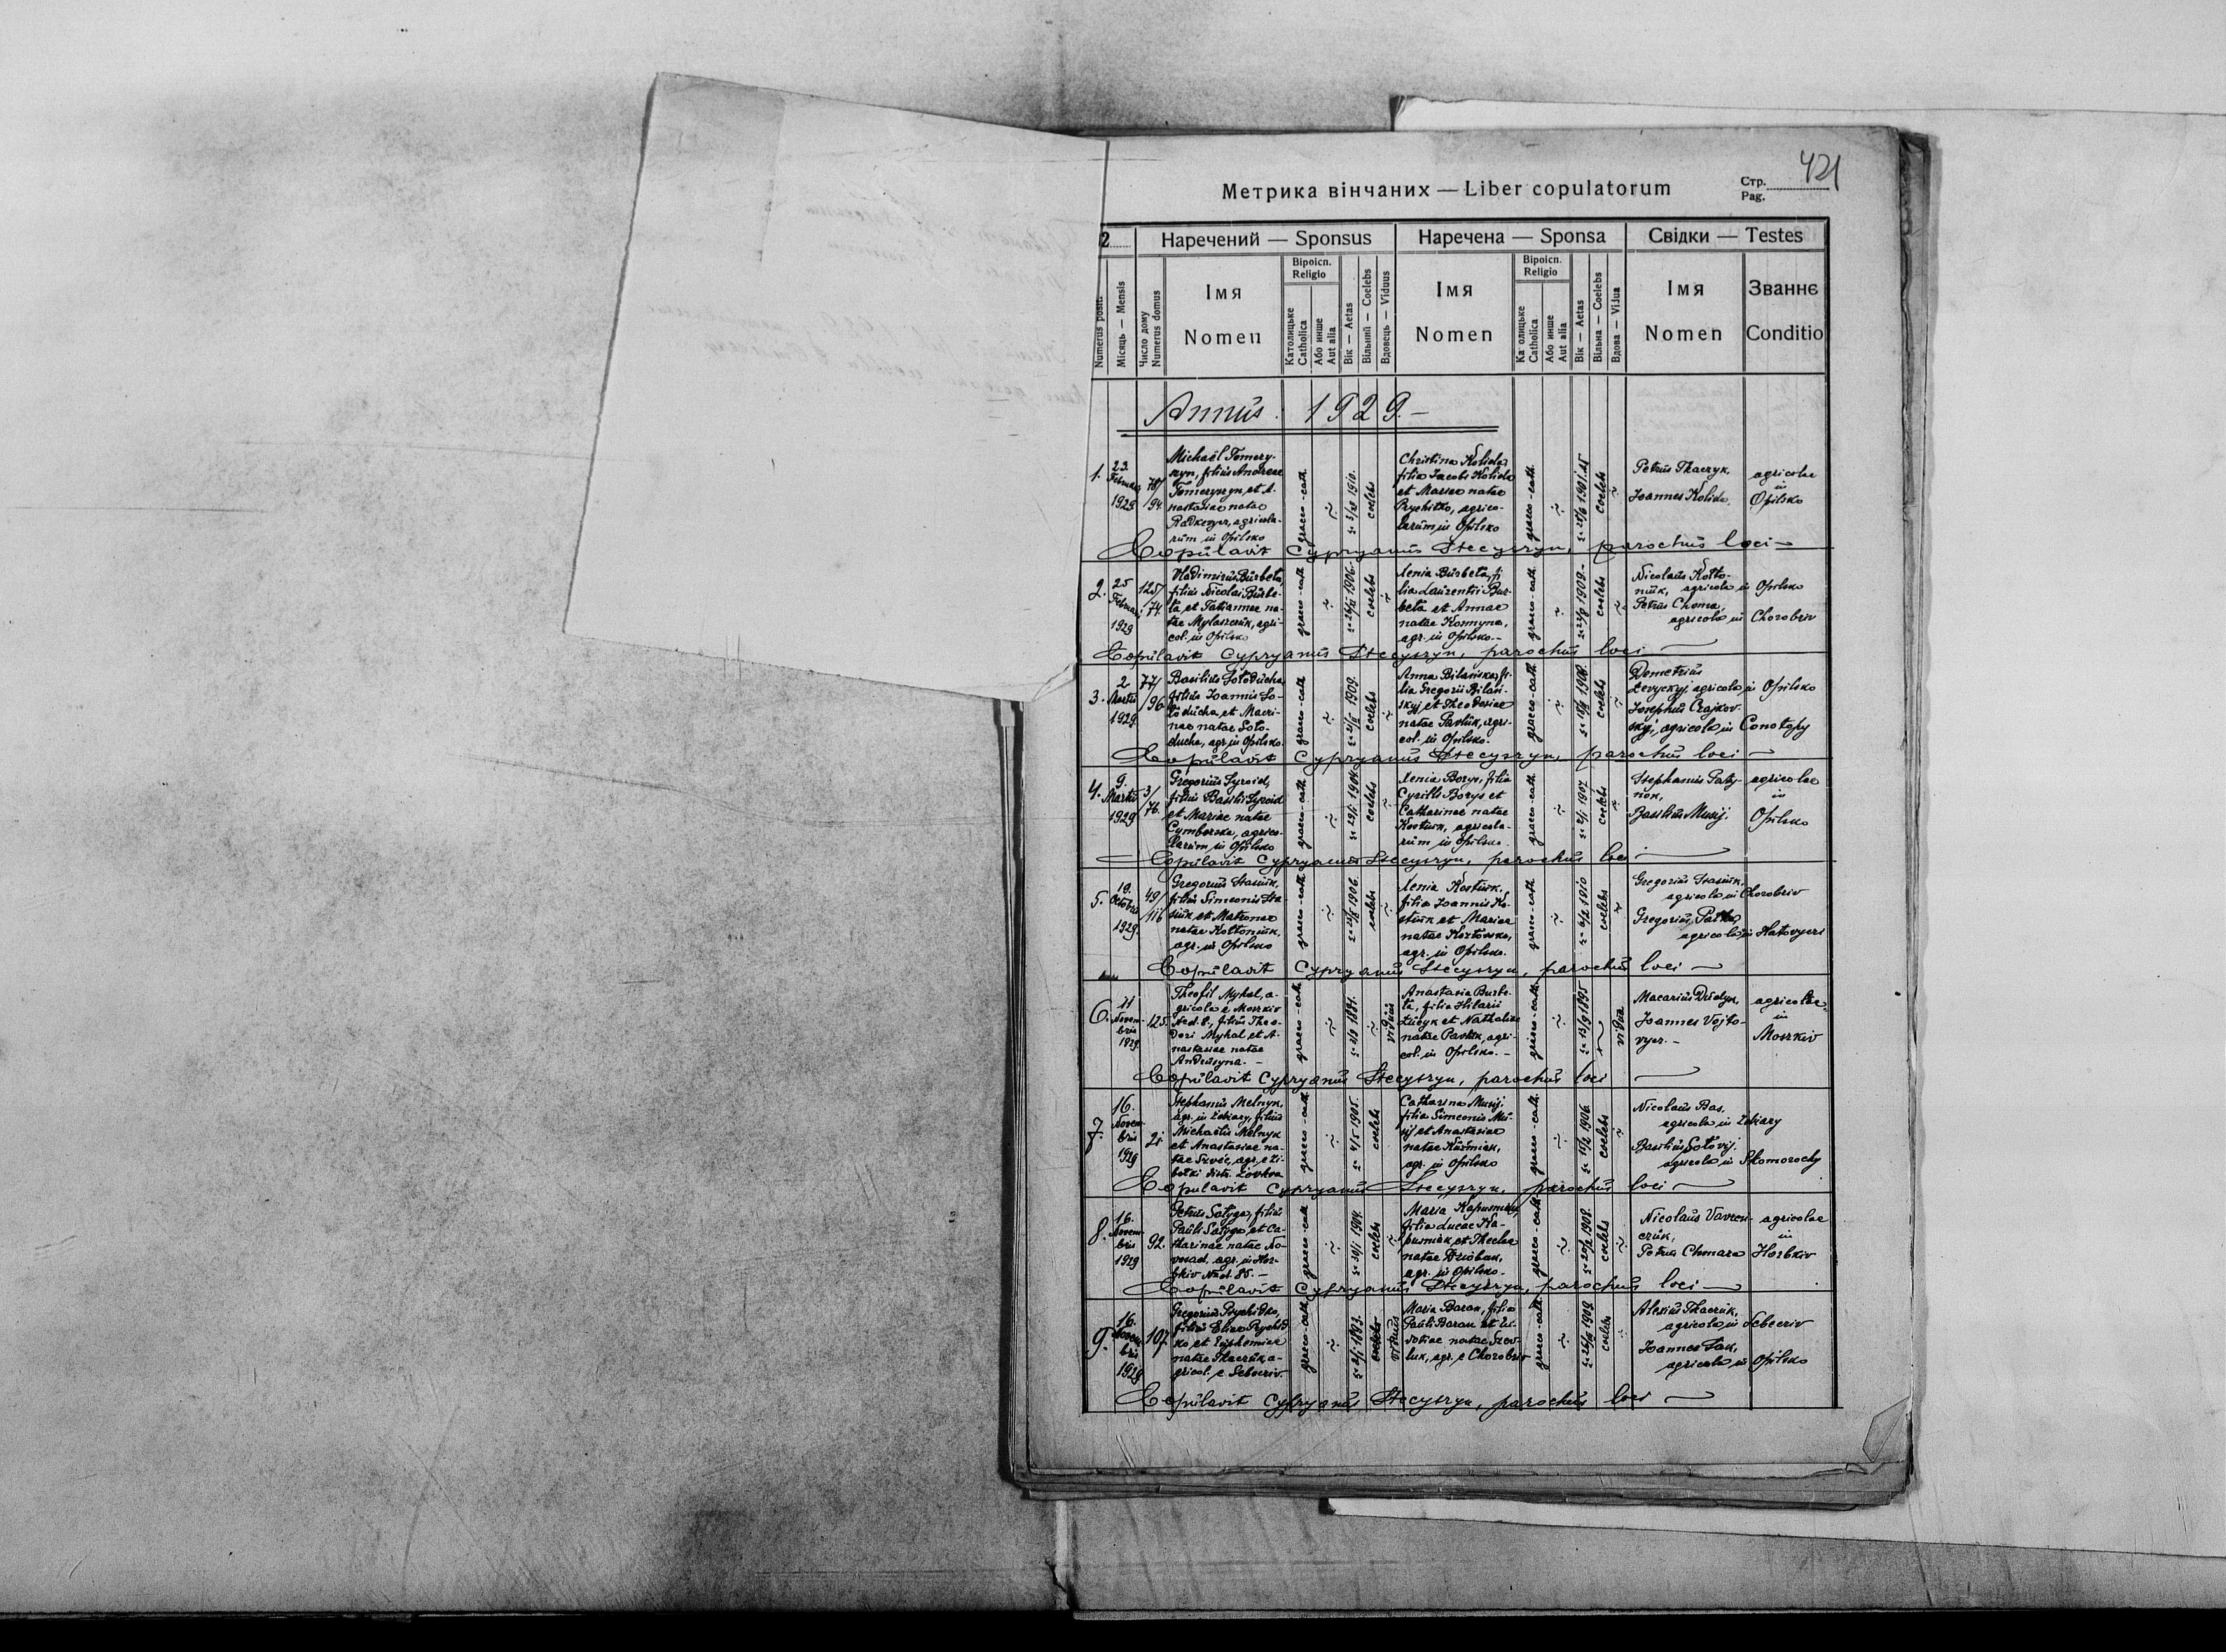 421
Метрика вінчаних — Liber copulatorum
Стр.
Pag.
2
Наречений — Sponsus
Наречена — Sponsa
Свідки — Testes
Numerus posit.
Місяць — Mensis
Число дому
Numerus domus
Імя
Nomen
Віроісп.
Religio
Католицьке
Catholica
Або инше
Aut alia
Вік — Aetas
Вільний — Coelebs
Вдовець — Viduus
Імя
Nomen
Віроісп.
Religio
Ка олицьке
Catholica
Або инше
Aut alia
Вік — Aetas
Вільна — Coelebs
Вдова — Vidua
Імя
Nomen
Званнє
Conditio
Annus 1929.—
1.
23.
1929
78/
94.
Michaël Tomery-
szyn, filius Andreae
Tomeryszyn, et A-
nastasiae natae
agricola-
rum in Opilsko
graeco-cath.
1910.
coelebs
Christina Kolida,
filia Jacobi Kolida
et Mariae natae
Prychitko, agrico-
larum in Opilsko
graeco-cath.
coelebs
Petrus Tkaczyk,
Joannes Kolida.
agricolae
in
Opilsko
Copulavit Cypryanus Stecyszyn, parochus loci —
2.
25
1929
125/
74
Vladimirus Burbeta,
filius Nicolai Burbe-
ta et Tatiannae na-
tae agri-
col. in Opilsko
graeco-cath.
1906.
coelebs
Xenia Burbeta, fi-
lia Laurentii Bur-
beta et Annae
natae
agr. in Opilsko.—
graeco-cath.
coelebs
Nicolaus Kolto-
niuk, agricola in Opilsko
Petrus Choma,
agricola in Chorobriv
Copulavit Cypryanus Stecyszyn, parochus loci —
3.
2
Martii
1929.
77/
96
Basilius Soloducha,
filius Joannis So-
loducha, et Macri-
nae natae Solo-
ducha, agr. in Opilsko.
graeco-cath.
1909.
coelebs
Anna Bilanska, fi-
lia Gregorii Bilan-
skyj et Theodosiae
natae Pavluk, agri-
col. in Opilsko.
graeco-cath.
1908.
coelebs
Demetrius
Levyckyj, agricola in Opilsko
Josephus Czajkov-
skyj, agricola in Conotopy
Copulavit Cypryanus Stecyszyn, parochus loci —
4.
9.
Martii
1929
3/
76.
Gregorius Syroid,
filius Basilii Syroid
et Mariae natae
Cymborska, agrico-
larum in Opilsko
graeco-cath.
1904.
coelebs
Xenia Borys, filia
Cyrilli Borys et
Catharinae natae
Kostiuk, agricola-
rum in Opilsko.
graeco-cath.
1907.
coelebs
Stephanus
Basilius Musij.
agricolae
in
Opilsko
Copulavit Cypryanus Stecyszyn, parochus loci —
5.
19.
Octobris
1929.
49/
116
Gregorius Stasiuk,
filius Simeonis Sta-
siuk et Matronae
natae Koltoniuk,
agr. in Opilsko
graeco-cath.
1906.
coelebs
Xenia Kostiuk,
filia Joannis Ko-
stiuk et Mariae
natae Kozlovska,
agr. in Opilsko.
graeco-cath.
1910
coelebs
Gregorius Stasiuk,
agricola in Chorobriv
Gregorius
agricola in
Copulavit Cypryanus Stecyszyn, parochus loci —
6.
Novem-
bris
1929.
125.
Theofil Myhal, a-
gricola e Moszkiv
filius Theo-
dori Myhal et A-
nastasiae natae
graeco-cath.
viduus
Anastasia Burbe-
ta, filia Hilarii
et Nathaliae
natae Pavluk, agri-
col. in Opilsko.—
graeco-cath.
1895
vidua
Macarius
Joannes Vojto-
vycz.—
agricolae
in
Moszkiv
Copulavit Cypryanus Stecyszyn, parochus loci —
7.
16.
Novem-
bris
1929
21
Stephanus Melnyk,
filius
Michaëlis Melnyk
et Anastasiae na-
tae
graeco-cath.
1905.
coelebs
Catharina Musij,
filia Simeonis Mu-
sij et Anastasiae
natae Kuśmiak,
agr. in Opilsko
graeco-cath.
1906.
coelebs
Nicolaus Bas,
agricola in
Basilius
agricola in Skomorochy
Copulavit Cypryanus Stecyszyn, parochus loci —
8.
16.
Novem-
bris
1929
92.
Petrus Salyga, filius
Pauli Salyga, et Ca-
tharinae natae No-
vosad, agr. in Hor-
bkiv
graeco-cath.
1904.
coelebs
Maria Kapusniak,
filia Lucae Ka-
pusniak et Theclae
natae Dzioban,
agr. in Opilsko.
graeco-cath.
1908.
coelebs
Nicolaus Vavren-
czuk,
Petrus Chmara
agricolae
in
Horbkiv
Copulavit Cypryanus Stecyszyn, parochus loci —
9.
16.
Novem-
bris
1929
107.
Gregorius Prychidko,
filius Eliae Prychid-
ko et Euphemiae
natae Tkaczuk, a-
gricol. e
graeco-cath.
1893.
coelebs
viduus
Maria Baran, filia
Pauli Baran et
natae
agr. e Chorobriv
graeco-cath.
coelebs
Alexius Tkaczuk,
agricola in
Joannes
agricola in Opilsko
Copulavit Cypryanus Stecyszyn, parochus loci —